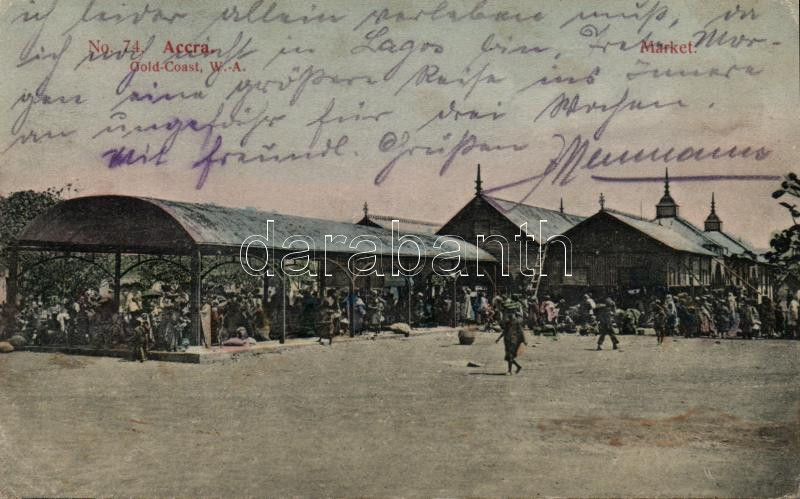 ich leider allein verleben muß, da
No. 74. Accra. Market.
Gold-Coast, W.-A.
ich noch nicht in Lagos bin. Trete Mor-
gen eine größere Reise ins Innere
an ungefähr für drei Wochen.
Mit freundl. Grüßen
Neumann
darabanth